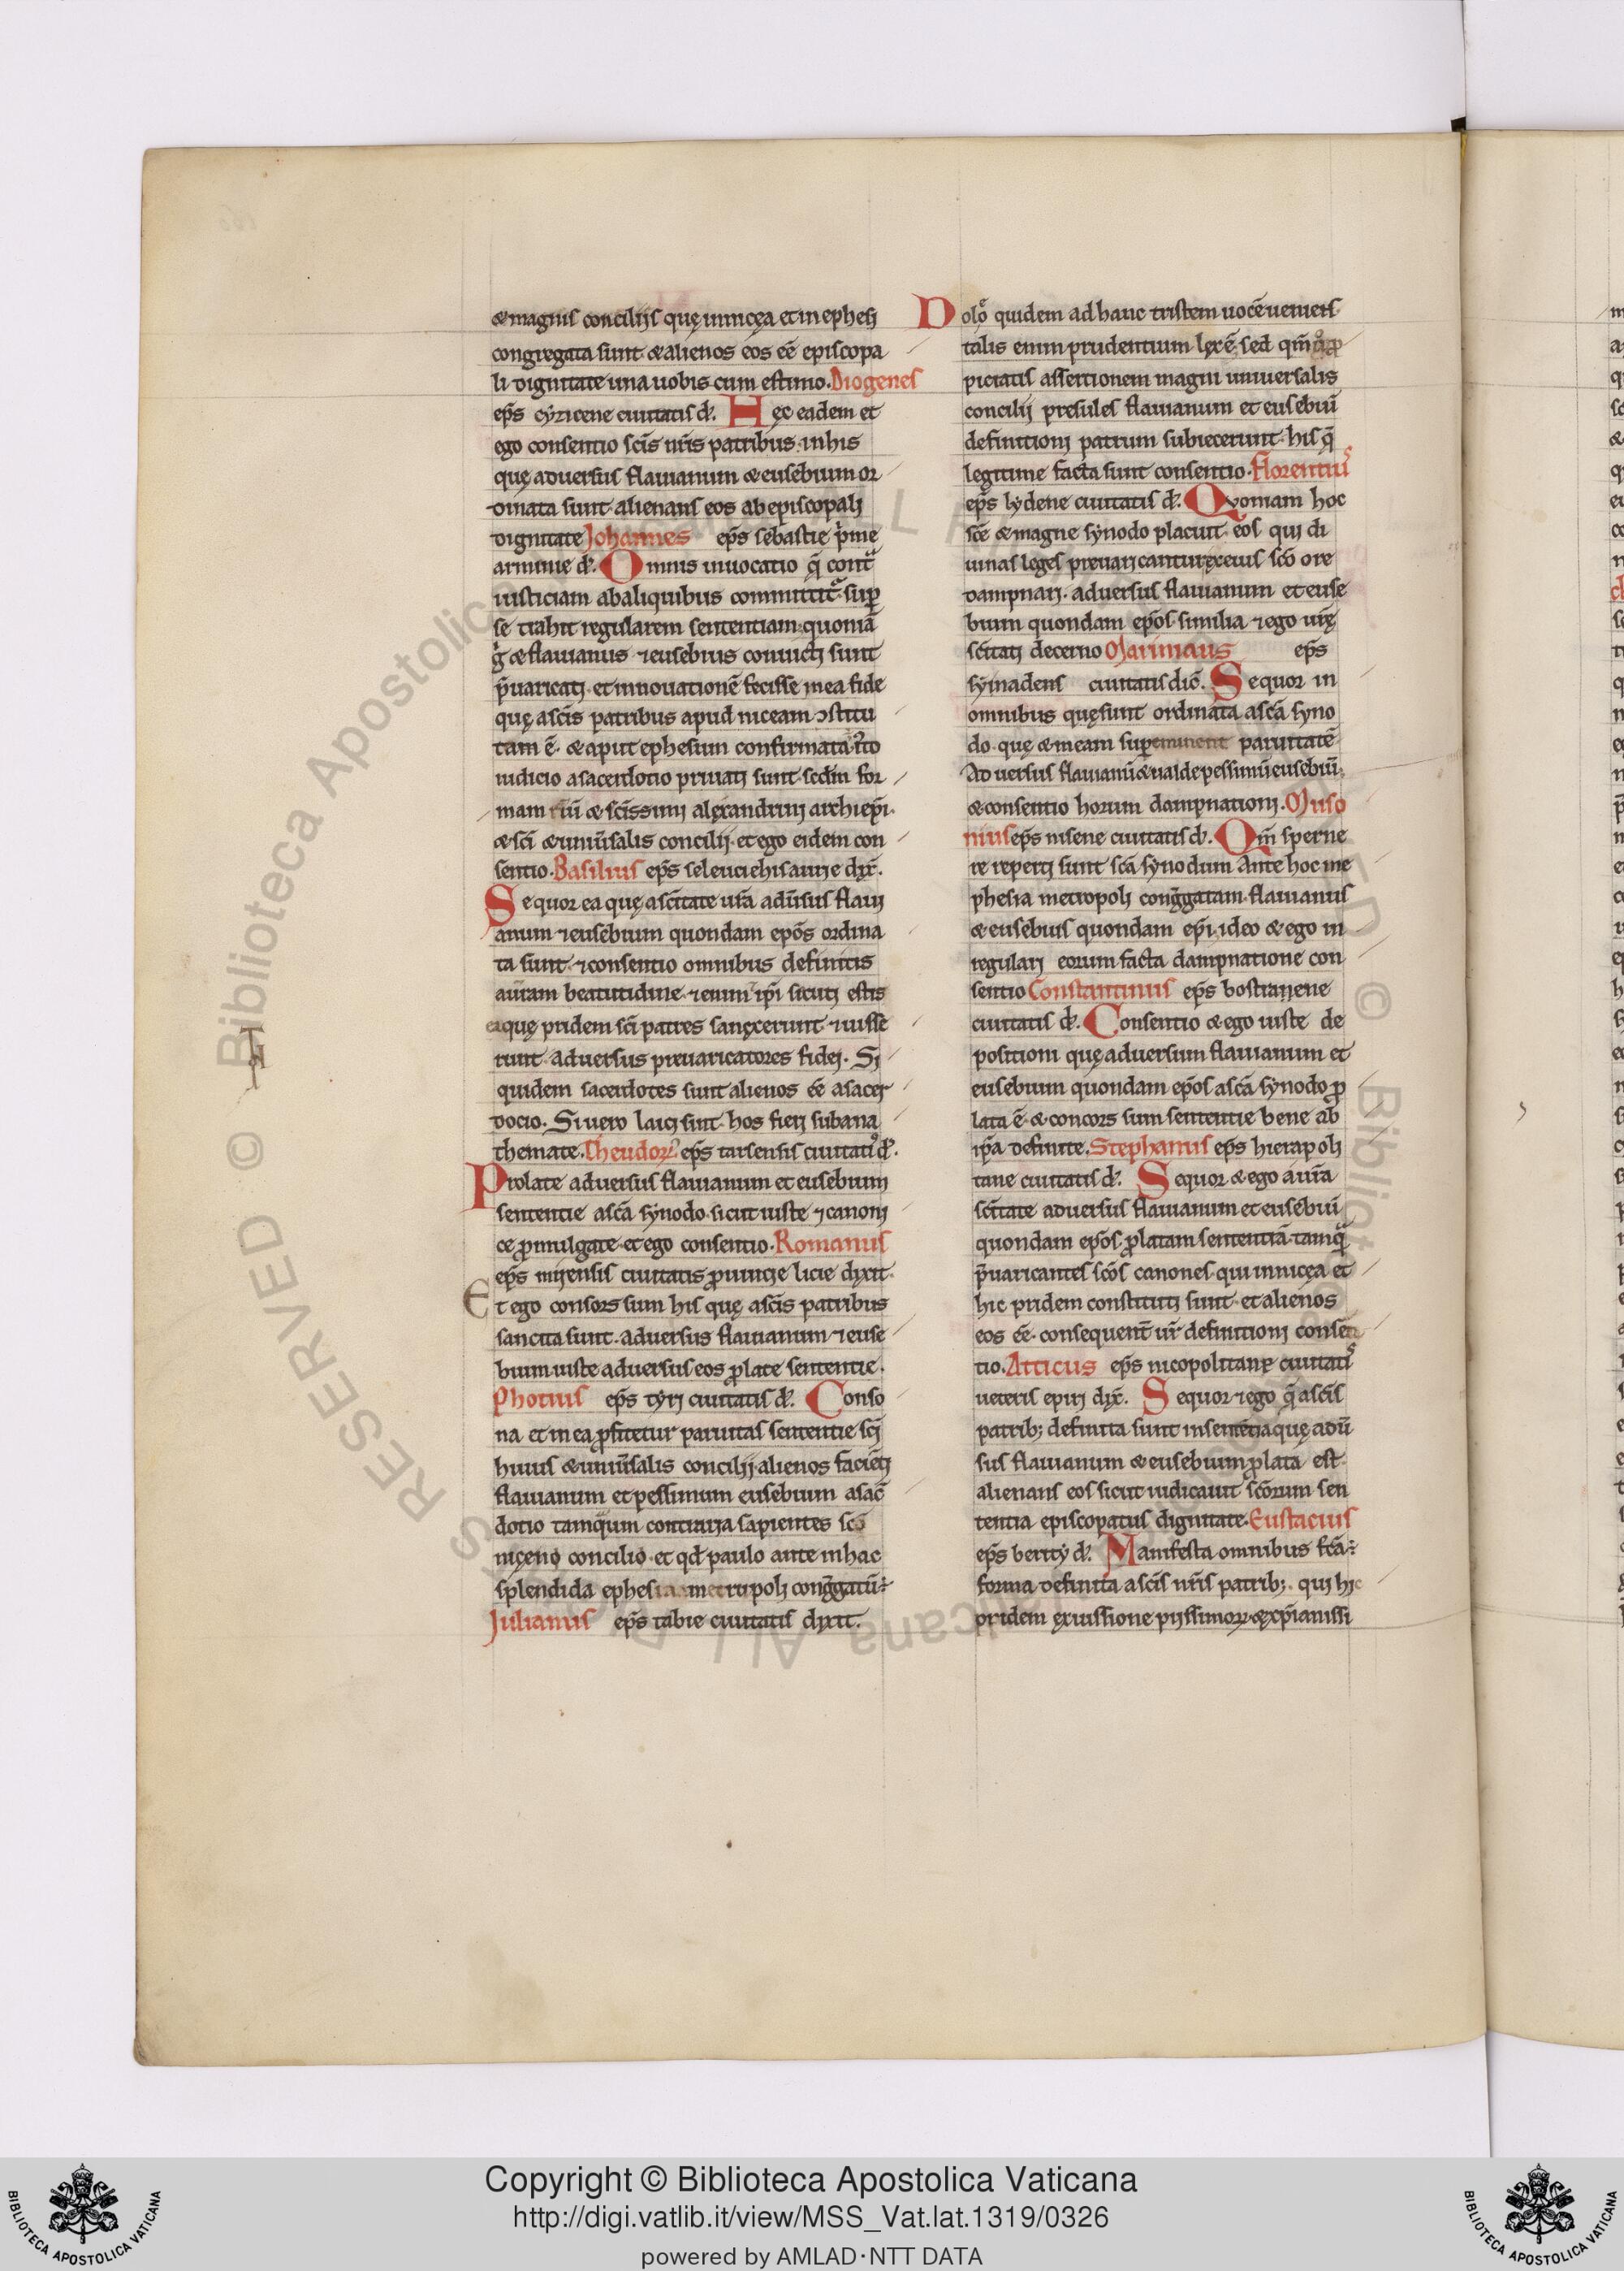 & magnis concilijs quę innicęa et in ephesi
congregata sunt & alienos eos eē episcopa
li dignitate una uobis cum estimo. Diogenes
ep̄s cyzicene ciuitatis d̄. Hęc eadem et
ego consentio sc̄is nr̄is patribus in his
quę aduersus flauianum & eusebium or
dinata sunt alienans eos ab episcopali
dignitate Johannes ep̄s sebastie p̄me
arminie d̄. Omnis inuocatio q̄ cont̄
iusticiam abaliquibus committit̄ sup̄
se trahit regularem sententiam quoniā
g̊ & flauianus ⁊ eusebius conuicti sunt
p̄uaricati et innouationē fecisse mea fide
quę ascīs patribus apud niceam ↄstitu
tam ē. & aput ephesum confirmata
iudicio asacerdotio priuati sunt scdm̄ for
mam & sc̄issimi alexandrini archiep̄i
& sc̄i & uniūsalis concilij et ego eidem con
sentio. Basilius ep̄s seleucie hisaurie dix̄.
Sequor ea quę asc̄itate ur̄a adūsus flaui
anum ⁊ eusebium quondam ep̄os ordina
ta sunt ⁊ consentio omnibus definitis
aur̄am beatitudine ⁊ enim ip̄i sicuti estis
ea quę pridem sc̄i patres sanxcerunt ⁊ iusse
runt aduersus preuaricatores fidei. Si
quidem sacerdotes sunt alienos eē asacer
docio. Si uero laici sint hos fieri subana
themate. Theudorꝰ ep̄s tarsensis ciuitatis d̄.
Prolate aduersus flauianum et eusebium
sententie asc̄a synodo sicut iuste ⁊ canoni
ce ꝓmulgate et ego consentio. Romanus
ep̄s mirensis ciuitatis ꝓuincie licie dixit.
Et ego consors sum his quę ascīs patribus
sancita sunt aduersus flauianum ⁊ euse
bium iuste aduersus eos ꝓlate sententie.
Photius ep̄s tyri ciuitatis d̄. Conso
na et mea ꝓfitetur paruitas sententie sc̄i
huius & uniūsalis concilij alienos faciēti
flauianum et pessimum eusebium asac̄
dotio tamquam contraria sapientes sc̄o
nicęno concilio et qd̄ paulo ante in hac
splendida ephesia metropoli cong̅gatū
Julianus ep̄s tabie ciuitatis dixit.
Dolor quidem ad hanc tristem uocē ueniens
talis enim prudentium lex ē sed qm̄
pietatis assertionem magni uniuersalis
concilij presules flauianum et eusebiū
definitioni patrum subiecerunt his q̄
legitime facta sunt consentio. Florentius
ep̄s lydene ciuitatis d̄. Quoniam hoc
sc̄e & magne synodo placuit eos qui di
uinas leges preuaricantur ex eius sc̄o ore
dampnari aduersus flauianum et euse
bium quondam ep̄os similia ⁊ ego ur̄ę
sc̄itati decerno Marinianus ep̄s
synadens ciuitatis dic̄. Sequor in
omnibus quę sunt ordinata asc̄a syno
do quę & meam supereminent paruitatē
Aduersus flauianū & ualde pessimū eusebiū
& consentio horum dampnationi. Muso
nius ep̄s nisene ciuitatis d̄. Qm̄ sperne
re reperti sunt sc̄a synodum ante hoc in e
phesia metropoli cong̅gatam flauianus
& eusebius quondam ep̄i ideo & ego in
regulari eorum facta dampnatione con
sentio Constantinus ep̄s bostranene
ciuitatis d̄. Consentio & ego iuste de
positioni quę aduersum flauianum et
eusebium quondam ep̄os asc̄a synodo ꝓ
lata ē & concors sum sententie bene ab
ip̄a definite. Stephanus ep̄s hierapoli
tane ciuitatis d̄. Sequor & ego a ur̄a
sc̄itate aduersus flauianum et eusebiū
quondam ep̄os ꝓlatam sententiā tamq̄
p̄uaricantes sc̄os canones qui innicęa et
hic pridem constituti sunt et alienos
eos eē consequent̄ ur̄ definitioni consen
tio. Atticus ep̄s nicopolitane ciuitatis
ueteris epiri dix̄. Sequor ⁊ ego q̄ ascīs
patrib; definita sunt insententia quę adū
sus flauianum & eusebium ꝓlata est
alienans eos sicut iudicauit sc̄orum sen
tentia episcopatus dignitate. Eustacius
ep̄s berity d̄. Manifesta omnibus fc̄a
forma definita ascīs nr̄is patrib; qui hic
pridem ex iussione pijssimoꝝ & xp̄ianissi
Copyright © Biblioteca Apostolica Vaticana
http://digi.vatlib.it/view/MSS_Vat.lat.1319/0326
powered by AMLAD·NTT DATA
BIBLIOTECA APOSTOLICA VATICANA
BIBLIOTECA APOSTOLICA VATICANA